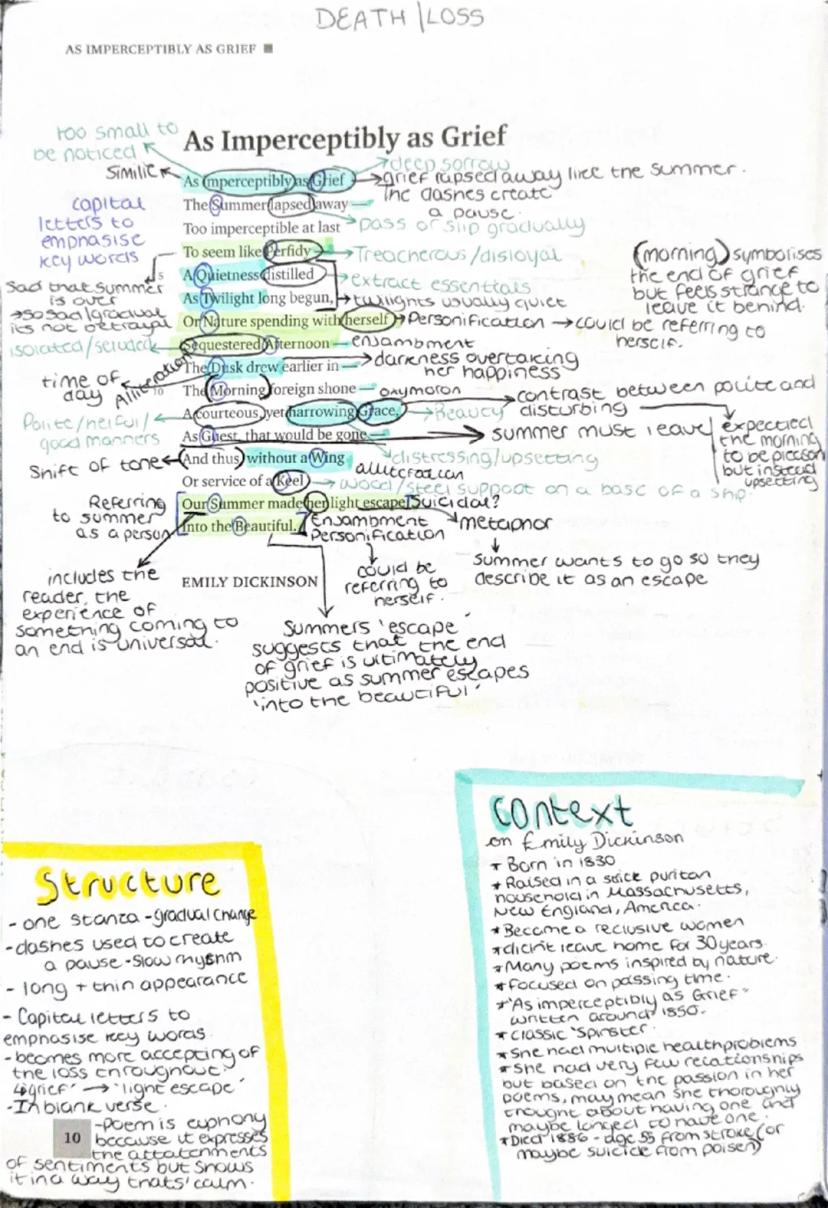 DEATH / LOSS
AS IMPERCEPTIBLY AS GRIEF ■
too small to
be noticed
As Imperceptibly as Grief
Similie
deep sorrow
As Imperceptibly as Grief
grief lapsed away like the summer.
The dashes create
a pause.
capital
letters to
emphasise
key words
The Summer lapsed away —
pass or slip gradually
Too imperceptible at last
To seem like Perfidy —
Treacherous/disloyal
5
A Quietness distilled
extract essentials
As Twilight long begun,
twilights usually quiet
(morning) symbolises
the end of grief
but feels strange to
leave it behind.
Sad that summer
is over
→ so sad/gradual
its not betrayal
Or Nature spending with herself
Personification → could be referring to
herself.
isolated/secluded
Sequestered Afternoon —
enjambment
Alliteration
The Dusk drew earlier in —
darkness overtaking
her happiness
time of
day
10
The Morning foreign shone —
oxymoron
contrast between polite and
disturbing
Polite/helful/
good manners
A courteous, yet harrowing Grace,
Beauty
As Guest, that would be gone —
summer must leave
expected
the morning
to be pleasant
but instead
upsetting
distressing/upsetting
Shift of tone
And thus, without a Wing
alliteration
Or service of a Keel
wood/steel support on a base of a ship.
Referring
to summer
as a person
Our Summer made her light escape
Suicidal?
Into the Beautiful.
Enjambment
Personification
metaphor
could be
referring to
herself.
summer wants to go so they
describe it as an escape
includes the
reader, the
experience of
something coming to
an end is universal.
EMILY DICKINSON
Summers 'escape'
suggests that the end
of grief is ultimately
positive as summer escapes
'into the beautiful'
Structure
- one stanza - gradual change
- dashes used to create
a pause - slow rhythm
- long + thin appearance
- Capital letters to
emphasise key words.
- becomes more accepting of
the loss throughout
↳ 'grief' → 'light escape'
- In blank verse.
- Poem is euphony
because it expresses
the attatchments
of sentiments but shows
it in a way thats' calm.
10
Context
on Emily Dickinson
* Born in 1830
* Raised in a strict puritan
household in Massachusetts,
New England, America.
* Became a reclusive women
* didn't leave home for 30 years.
* Many poems inspired by nature.
* Focused on passing time.
* "As imperceptibly as Grief"
written around 1850.
* classic 'Spinster'.
* She had multiple health problems
* She had very few relationships
but based on the passion in her
poems, may mean she thoroughly
thought about having one and
maybe longed to have one.
* Died 1886 - age 55 from stroke (or
maybe suicide from poisen)